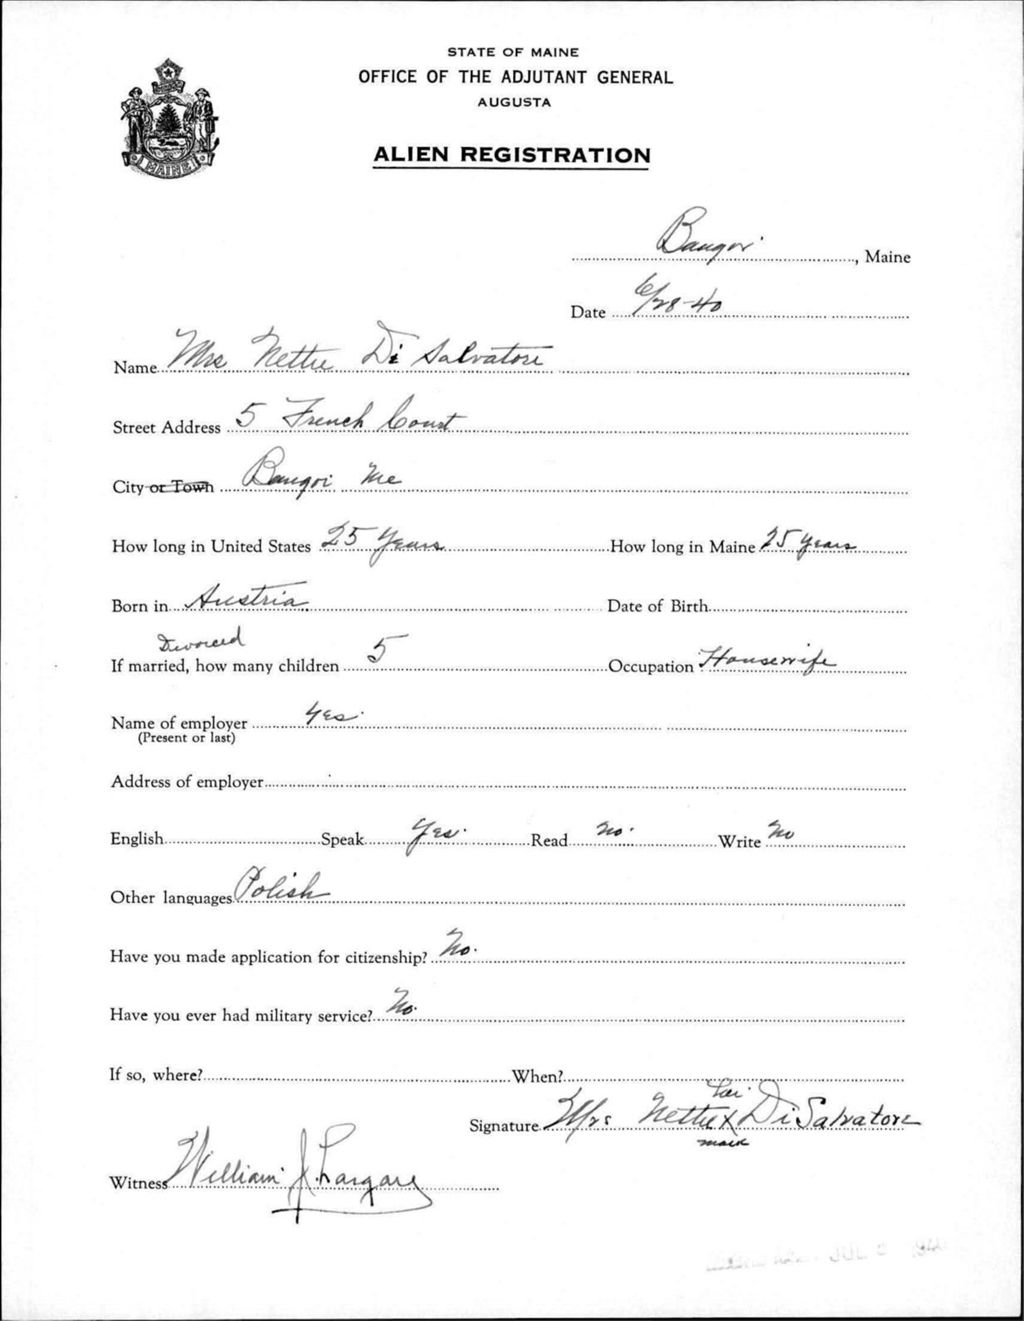 STATE OF MAINE
OFFICE OF THE ADJUTANT GENERAL
AUGUSTA
ALIEN REGISTRATION
MAINE
Bangor, Maine
Date 6/28-40
Name Mrs Nettie Di Salvatore
Street Address 5 French Court
City or Town Bangor Me
How long in United States 25 Years How long in Maine 25 years
Born in Austria Date of Birth
Divorced
If married, how many children 5 Occupation Housewife
Name of employer Yes
(Present or last)
Address of employer
English Speak Yes. Read No. Write No
Other languages Polish
Have you made application for citizenship? No.
Have you ever had military service? No.
If so, where? When?
her
Signature Mrs Nettie X Di Salvatore
mark
Witness William J.
JUL